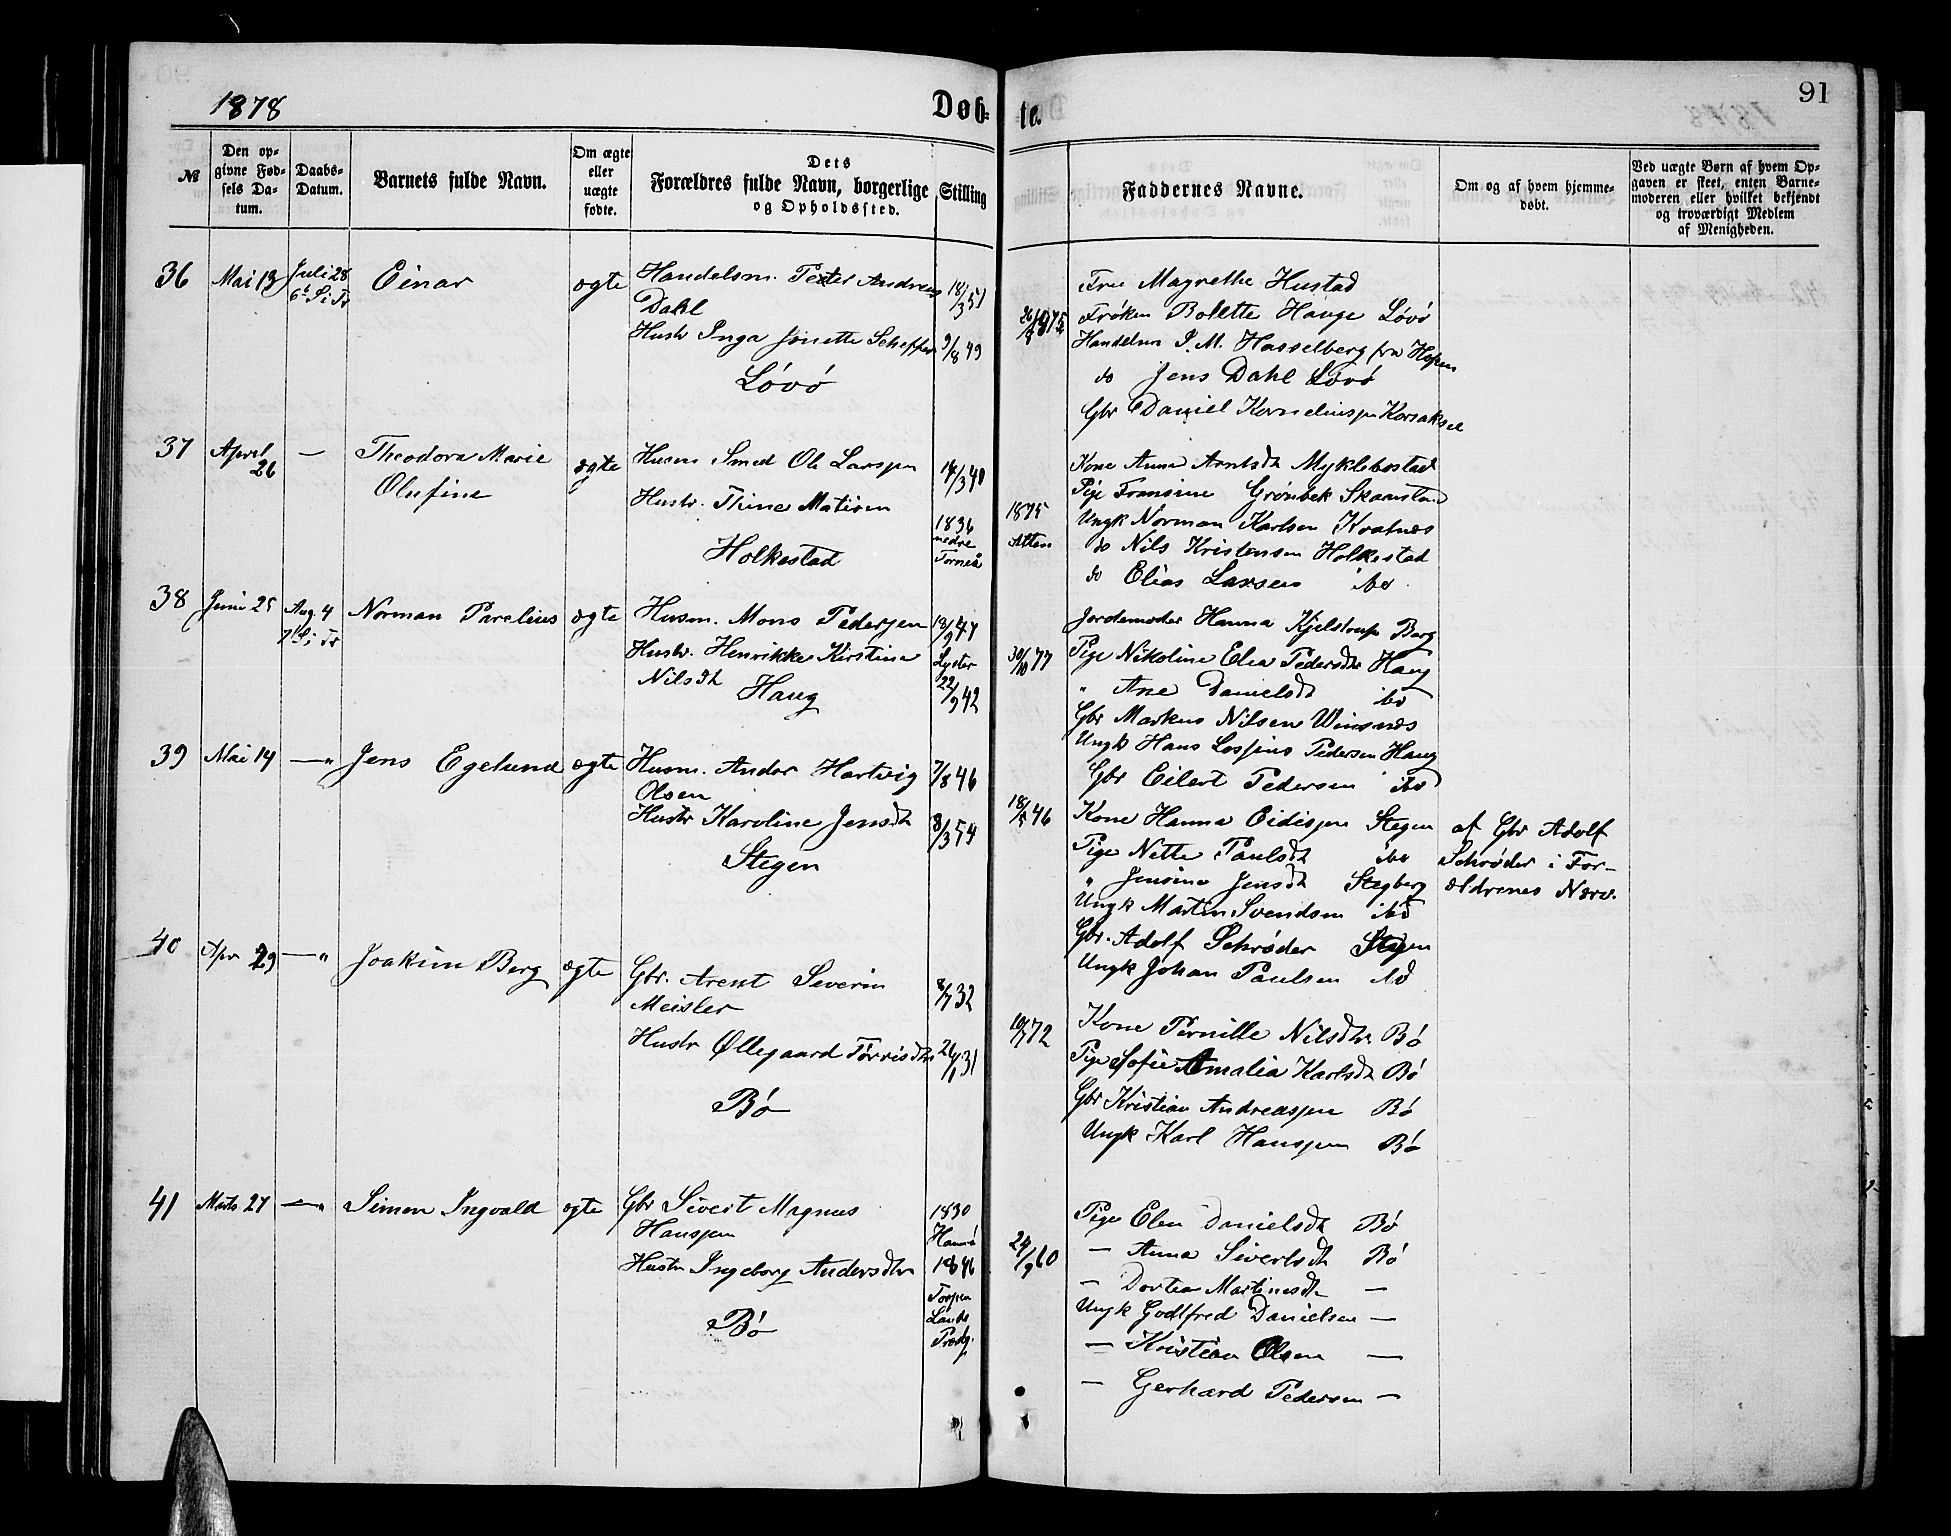 1878
Døb-
te.
91
№
Den op-
givne Fød-
sels Da-
tum.
Daabs-
Datum.
Barnets fulde Navn.
Om ægte
eller
uægte
fødte.
Dets
Forældres fulde Navn, borgerlige Stilling
og Opholdssted.
Faddernes Navne.
Om og af hvem hjemme-
døbt.
Ved uægte Børn af hvem Op-
gaven er skeet, enten Barne-
moderen eller hvilket bekjendt
og troværdigt Medlem
af Menigheden.
36 Mai 13 Juli 28 Einar ægte Handelsm. Peter Andreas 18/3 51
6t S. i Tr
Dahl
Hustr Inga Jonette Scheffer 9/8 49
Løvø
Fru Magrethe Hustad
Frøken Bolette Hauge Løvø
Handelsm J. M. Hasselberg fra Hopen
do Jens Dahl Løvø
Gbr Daniel Korneliussen Korsaksel
37 April 26 — Theodora Marie ægte Husm Smed Ole Larssen 14/3 40
Olufine
Hustr. Thine Matisen 1836
nedre
Torneå
Holkestad
1875
Alten
Kone Anna Arntsdt Myklebostad
Pige Fransine Grønbek Skaanstan
Ungk Norman Karlsen Kvalnæs
do Nils Kristensen Holkestad
do Elias Larsen ibd
38 Juni 25 Aug. 4 Norman Parelius ægte Husm. Mons Pedersen 13/9 47
7d S. i Tr
Lyster
Hustr. Henrikke Kirstine
Nilsdt 22/9 42
Haug
30/10 77
Jordemoder Hanna Kjelstrup Berg
Pige Nikoline Elea Pedersdtr Haug
" Ane Danielsdt ibd
Gbr Markus Nilsen Winsnæs
Ungk Hans Lossius Pedersen Haug
Gbr Eilert Pedersen ibd
39 Mai 14 —" Jens Egelund ægte Husm. Andor Hartvig 7/8 46
Olsen
Hustr Karoline Jensdt 8/3 54
Stegen
Kone Hanna Eidissen Stegen
Pige Nette Paulsdt ibd
" Jensine Jensdt Stegberg
Ungk Martin Svendsen ibd
Gbr. Adolf Schrøder Stegen
Ungk Johan Paulsen ibd
af Gbr Adolf
Schrøder i For-
ældrenes Nærv.
40 Apr 29 —" Joakim Berg ægte Gbr. Arent Severin 8/7 32
Meisler
Hustr Øllegaard Tørrisdtr 26/1 31
Bø
Kone Pernille Nilsdtr Bø
Pige Sofie Amalia Karlsdt Bø
Gbr Kristian Andreassen Bø
Ungk Karl Hanssen Bø
41 Marts 27 —" Simon Ingvald ægte Gbr Sivert Magnus 1830
Hanssen
Hustr Ingeborg Andersdtr 1846
Torpen
Lands
Prædg.
Bø
24/9 60
Pige Elen Danielsdt Bø
— Anna Sivertsdt Bø
— Dortea Martinusdtr —
Ungk Godtfred Danielsen —
— Kristian Olsen —
— Gerhard Pedersen —